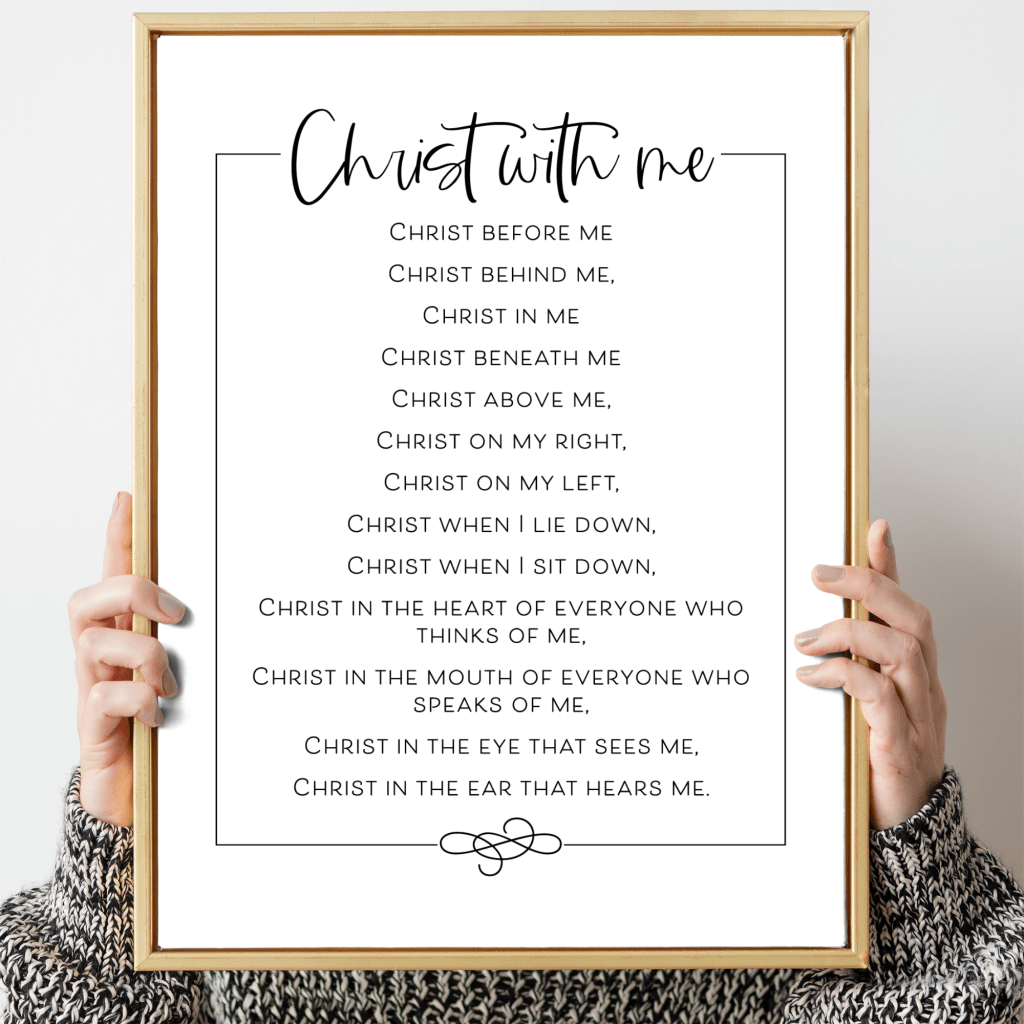 Christ with me
Christ before me
Christ behind me,
Christ in me
Christ beneath me
Christ above me,
Christ on my right,
Christ on my left,
Christ when I lie down,
Christ when I sit down,
Christ in the heart of everyone who
thinks of me,
Christ in the mouth of everyone who
speaks of me,
Christ in the eye that sees me,
Christ in the ear that hears me.